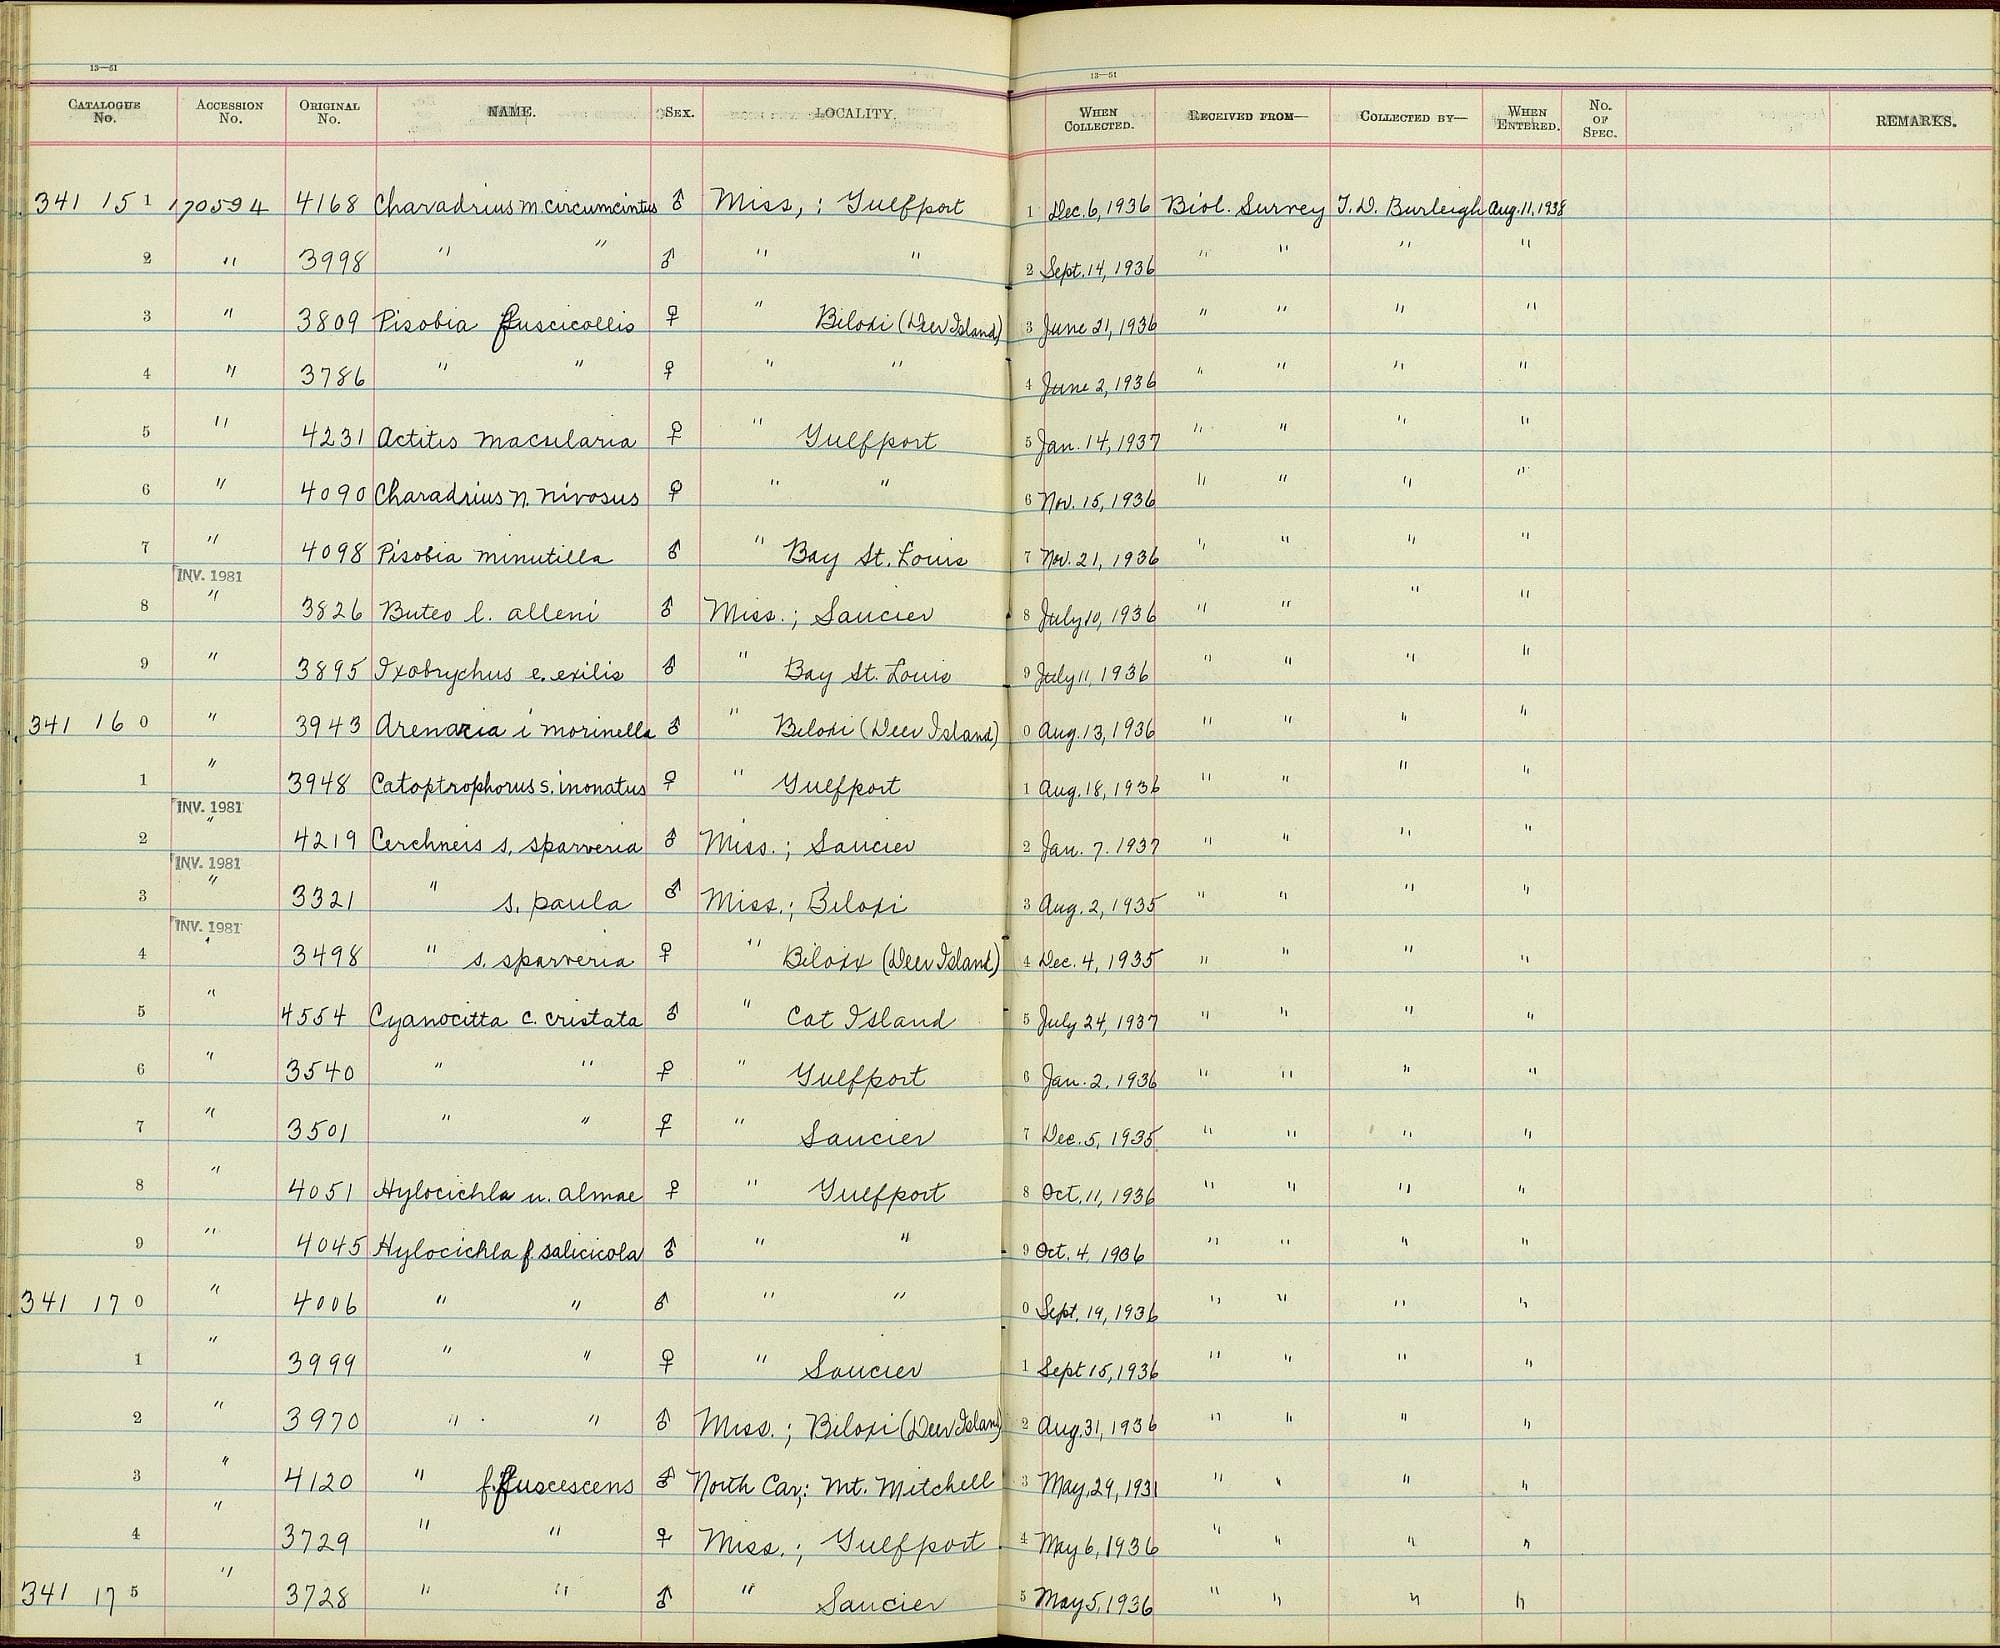 13—51
13—51
CATALOGUE No. ACCESSION No. ORIGINAL No. NAME. SEX. LOCALITY. WHEN COLLECTED. RECEIVED FROM— COLLECTED BY— WHEN ENTERED. No. OF SPEC. REMARKS.
341 15 1 170594 4168 Charadrius m. circumcintus ♂ Miss, ; Gulfport 1 Dec. 6, 1936 Biol. Survey T. D. Burleigh Aug. 11, 1938
2 " 3998 " " ♂ " " 2 Sept. 14, 1936 " " " "
3 " 3809 Pisobia fuscicollis ♀ " Biloxi (Deer Island) 3 June 21, 1936 " " " "
4 " 3786 " " ♀ " " 4 June 2, 1936 " " " "
5 " 4231 Actitis macularia ♀ " Gulfport 5 Jan. 14, 1937 " " " "
6 " 4090 Charadrius n. nivosus ♀ " " 6 Nov. 15, 1936 " " " "
7 " 4098 Pisobia minutilla ♂ " Bay St. Louis 7 Nov. 21, 1936 " " " "
INV. 1981
8 " 3826 Buteo l. alleni ♂ Miss. ; Saucier 8 July 10, 1936 " " " "
9 " 3895 Ixobrychus e. exilis ♂ " Bay St. Louis 9 July 11, 1936 " " " "
341 16 0 " 3943 Arenaria i morinella ♂ " Biloxi (Deer Island) 0 Aug. 13, 1936 " " " "
1 " 3948 Catoptrophorus s. inonatus ♀ " Gulfport 1 Aug. 18, 1936 " " " "
INV. 1981
2 " 4219 Cerchneis s. sparveria ♂ Miss. ; Saucier 2 Jan. 7. 1937 " " " "
INV. 1981
3 " 3321 " s. paula ♂ Miss. ; Biloxi 3 Aug. 2, 1935 " " " "
INV. 1981
4 " 3498 " s. sparveria ♀ " Biloxi (Deer Island) 4 Dec. 4, 1935 " " " "
5 " 4554 Cyanocitta c. cristata ♂ " Cat Island 5 July 24, 1937 " " " "
6 " 3540 " " ♀ " Gulfport 6 Jan. 2. 1936 " " " "
7 " 3501 " " ♀ " Saucier 7 Dec. 5, 1935 " " " "
8 " 4051 Hylocichla u. almae ♀ " Gulfport 8 Oct. 11, 1936 " " " "
9 " 4045 Hylocichla f. salicicola ♂ " " 9 Oct. 4, 1936 " " " "
341 17 0 " 4006 " " ♂ " " 0 Sept. 19, 1936 " " " "
1 " 3999 " " ♀ " Saucier 1 Sept 15, 1936 " " " "
2 " 3970 " " ♂ Miss. ; Biloxi (Deer Island) 2 Aug. 31, 1936 " " " "
3 " 4120 " f. fuscescens ♂ North Car; : Mt. Mitchell 3 May, 29, 1931 " " " "
4 " 3729 " " ♀ Miss. ; Gulfport 4 May 6, 1936 " " " "
341 17 5 " 3728 " " ♂ " Saucier 5 May 5, 1936 " " " "